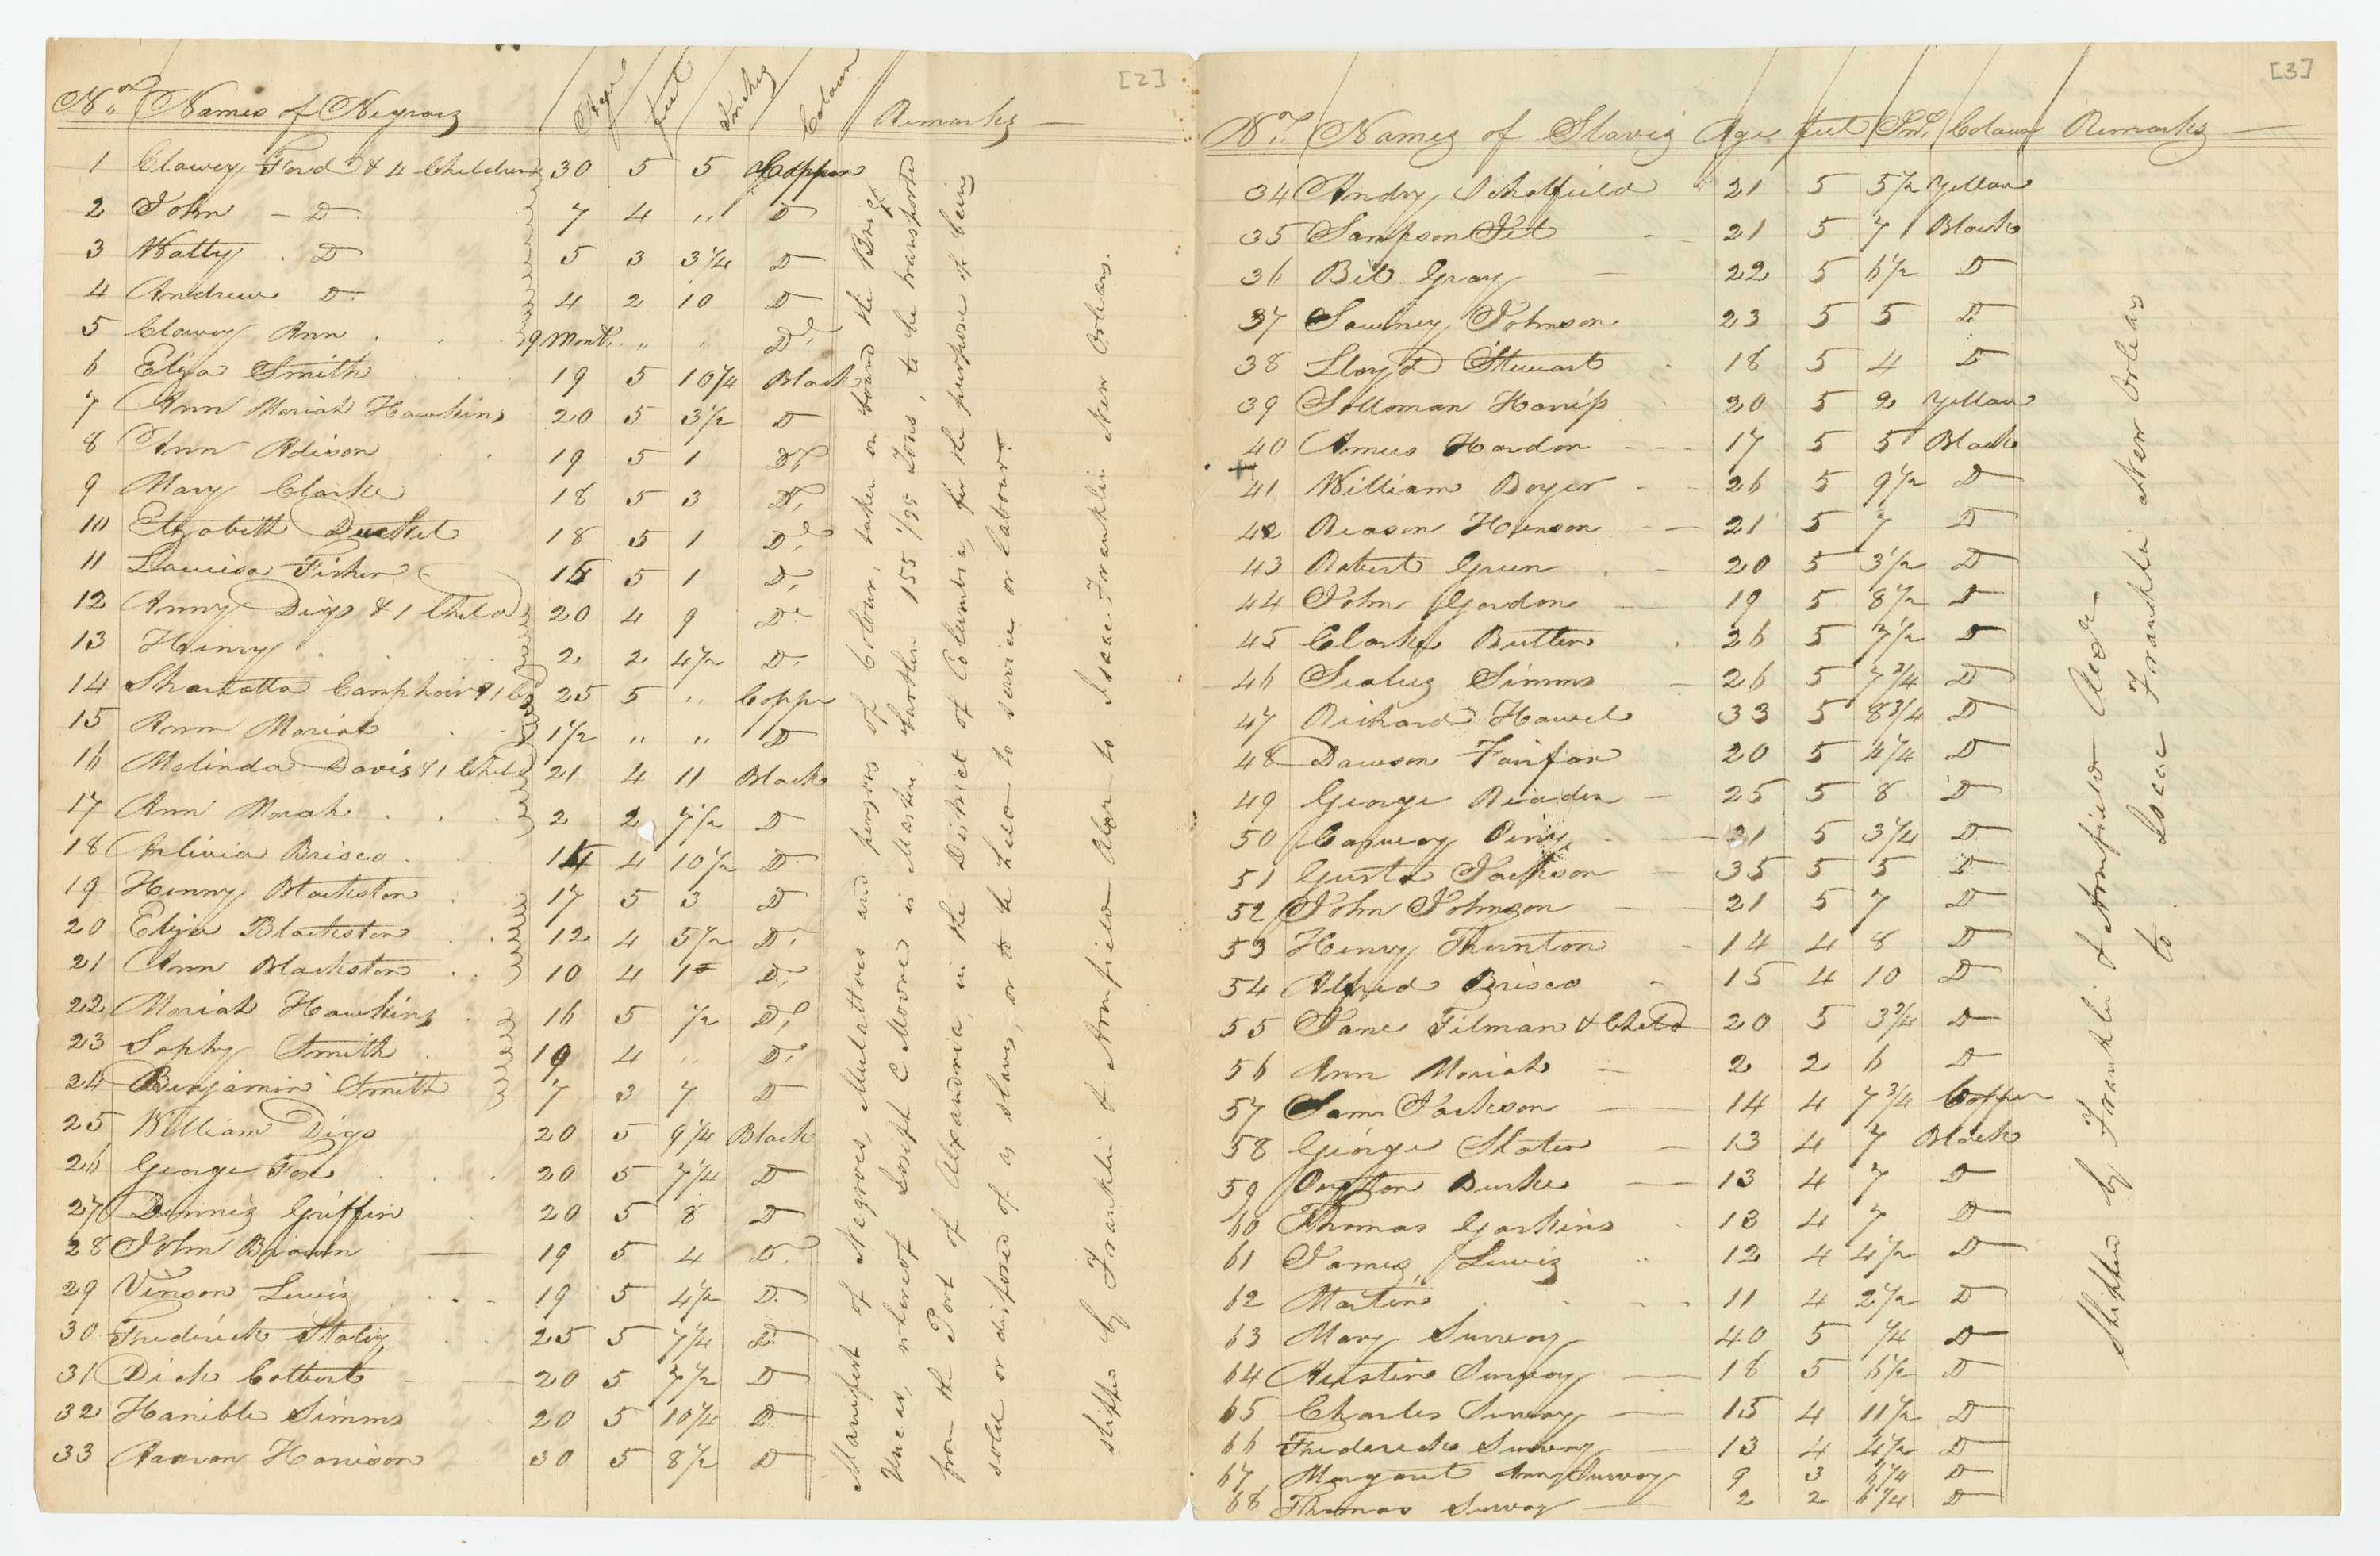 [2]
Nos. Names of Negroes Age feet Inches Colour Remarks
1 Clawey Ford & 4 Children 30 5 5 Copper
2 John - Do 7 4 " D
3 Watty . D 5 3 3 1/4 D
4 Andrew D 4 2 10 D
5 Clawey Ann 9 Mont. " " Do
6 Eliza Smith 19 5 10 1/4 Black
7 Ann Moriah Hawkins 20 5 3 1/2 D
8 Ann Adison 19 5 1 Do
9 Mary Clarke 18 5 3 Do
10 Elizabeth Ducket 18 5 1 Do
11 Louisa Fisher 15 5 1 Do
12 Anny Digs & 1 Child 20 4 9 Do
13 Heinry 2 2 4 1/2 D
14 Sharlotta & 1 25 5 " Copper
15 Ann Moriah 1 1/2 " " D
16 Malinda Davis & 1 Child 21 4 11 Black
17 Ann Moriah 2 2 7 1/2 D
18 Arlivia Brisco 14 4 10 1/2 D
19 Henny Blackston 17 5 3 D
20 Eliza Blackston 12 4 5 1/2 Do
21 Ann Blackston 10 4 1 Do
22 Moriah Hawkins 16 5 1/2 Do
23 Sophy Smith 19 4 " Do
24 Benjamin Smith 7 3 7 D
25 William Digs 20 5 9 1/4 Black
26 George Fox 20 5 7 1/4 D
27 Denniz Griffin 20 5 8 D
28 John Brown 19 5 4 Do
29 Vinson Lewis 19 5 4 1/2 D.
30 Frederick 25 5 7 1/4 D
31 Dick Colbert 20 5 7 1/2 D
32 Hanible Simms 20 5 10 1/4 D
33 Aaaron Harrison 30 5 8 1/2 D
Manifest of Negroes, Mulattoes and persons of Colour, taken on board the Brig
Uncas, whereof Joseph C Moore is Master, burthen 155 1/95 Tons, to be transported
from the Port of Alexandria, in the District of Columbia, for the purpose of being
sold or disposed of as slaves, or to be held to service or labour.
Shipped by Franklin & Armfield Alexr to Isaac Franklin New Orleans.
[3]
Nos. Names of Slaves Age feet In. Colour Remarks
34 Andry 21 5 5 1/2 Yellow
35 Sampson 21 5 7 Black
36 Bill Gray 22 5 6 1/2 D
37 Sawney Johnson 23 5 5 D
38 Lloyd Stewart 18 5 4 D
39 Solloman 20 5 2 Yellow
40 Amus Hardon 17 5 5 Black
41 William Boyer 26 5 9 1/2 D
42 Reason Henson 21 5 7 D
43 Robert Green 20 5 3 1/2 D
44 John Gordon 19 5 8 1/2 D
45 Clarke Butler 26 5 7 1/2 D
46 Simms 26 5 7 3/4 D
47 Richard Howel 33 5 8 3/4 D
48 Dawson Fairfax 20 5 4 1/4 D
49 George Reader 25 5 8 D
50 21 5 3 1/4 D
51 Gusta Jackson 35 5 5 D
52 John Johnson 21 5 7 D
53 Henry Thornton 14 4 8 D
54 Alfred Brisco 15 4 10 D
55 Jane Tilman & Child 20 5 3 3/4 D
56 Ann Moriah 2 2 6 D
57 Sam Jackson 14 4 7 3/4 Copper
58 George Slater 13 4 7 Black
59 Burke 13 4 7 D
60 Thomas Gaskins 13 4 7 D
61 James Lewis 12 4 4 1/2 D
62 Martin 11 4 2 1/2 D
63 Mary 40 5 1/4 D
64 Austin 18 5 6 1/2 D
65 Charles 15 4 11 1/2 D
66 Frederick 13 4 4 1/2 D
67 Margaret Ann 9 3 6 1/4 D
68 Thomas 2 2 6 1/4 D
Shipped by Franklin & Armfield Alexr
to Isaac Franklin New Orleans